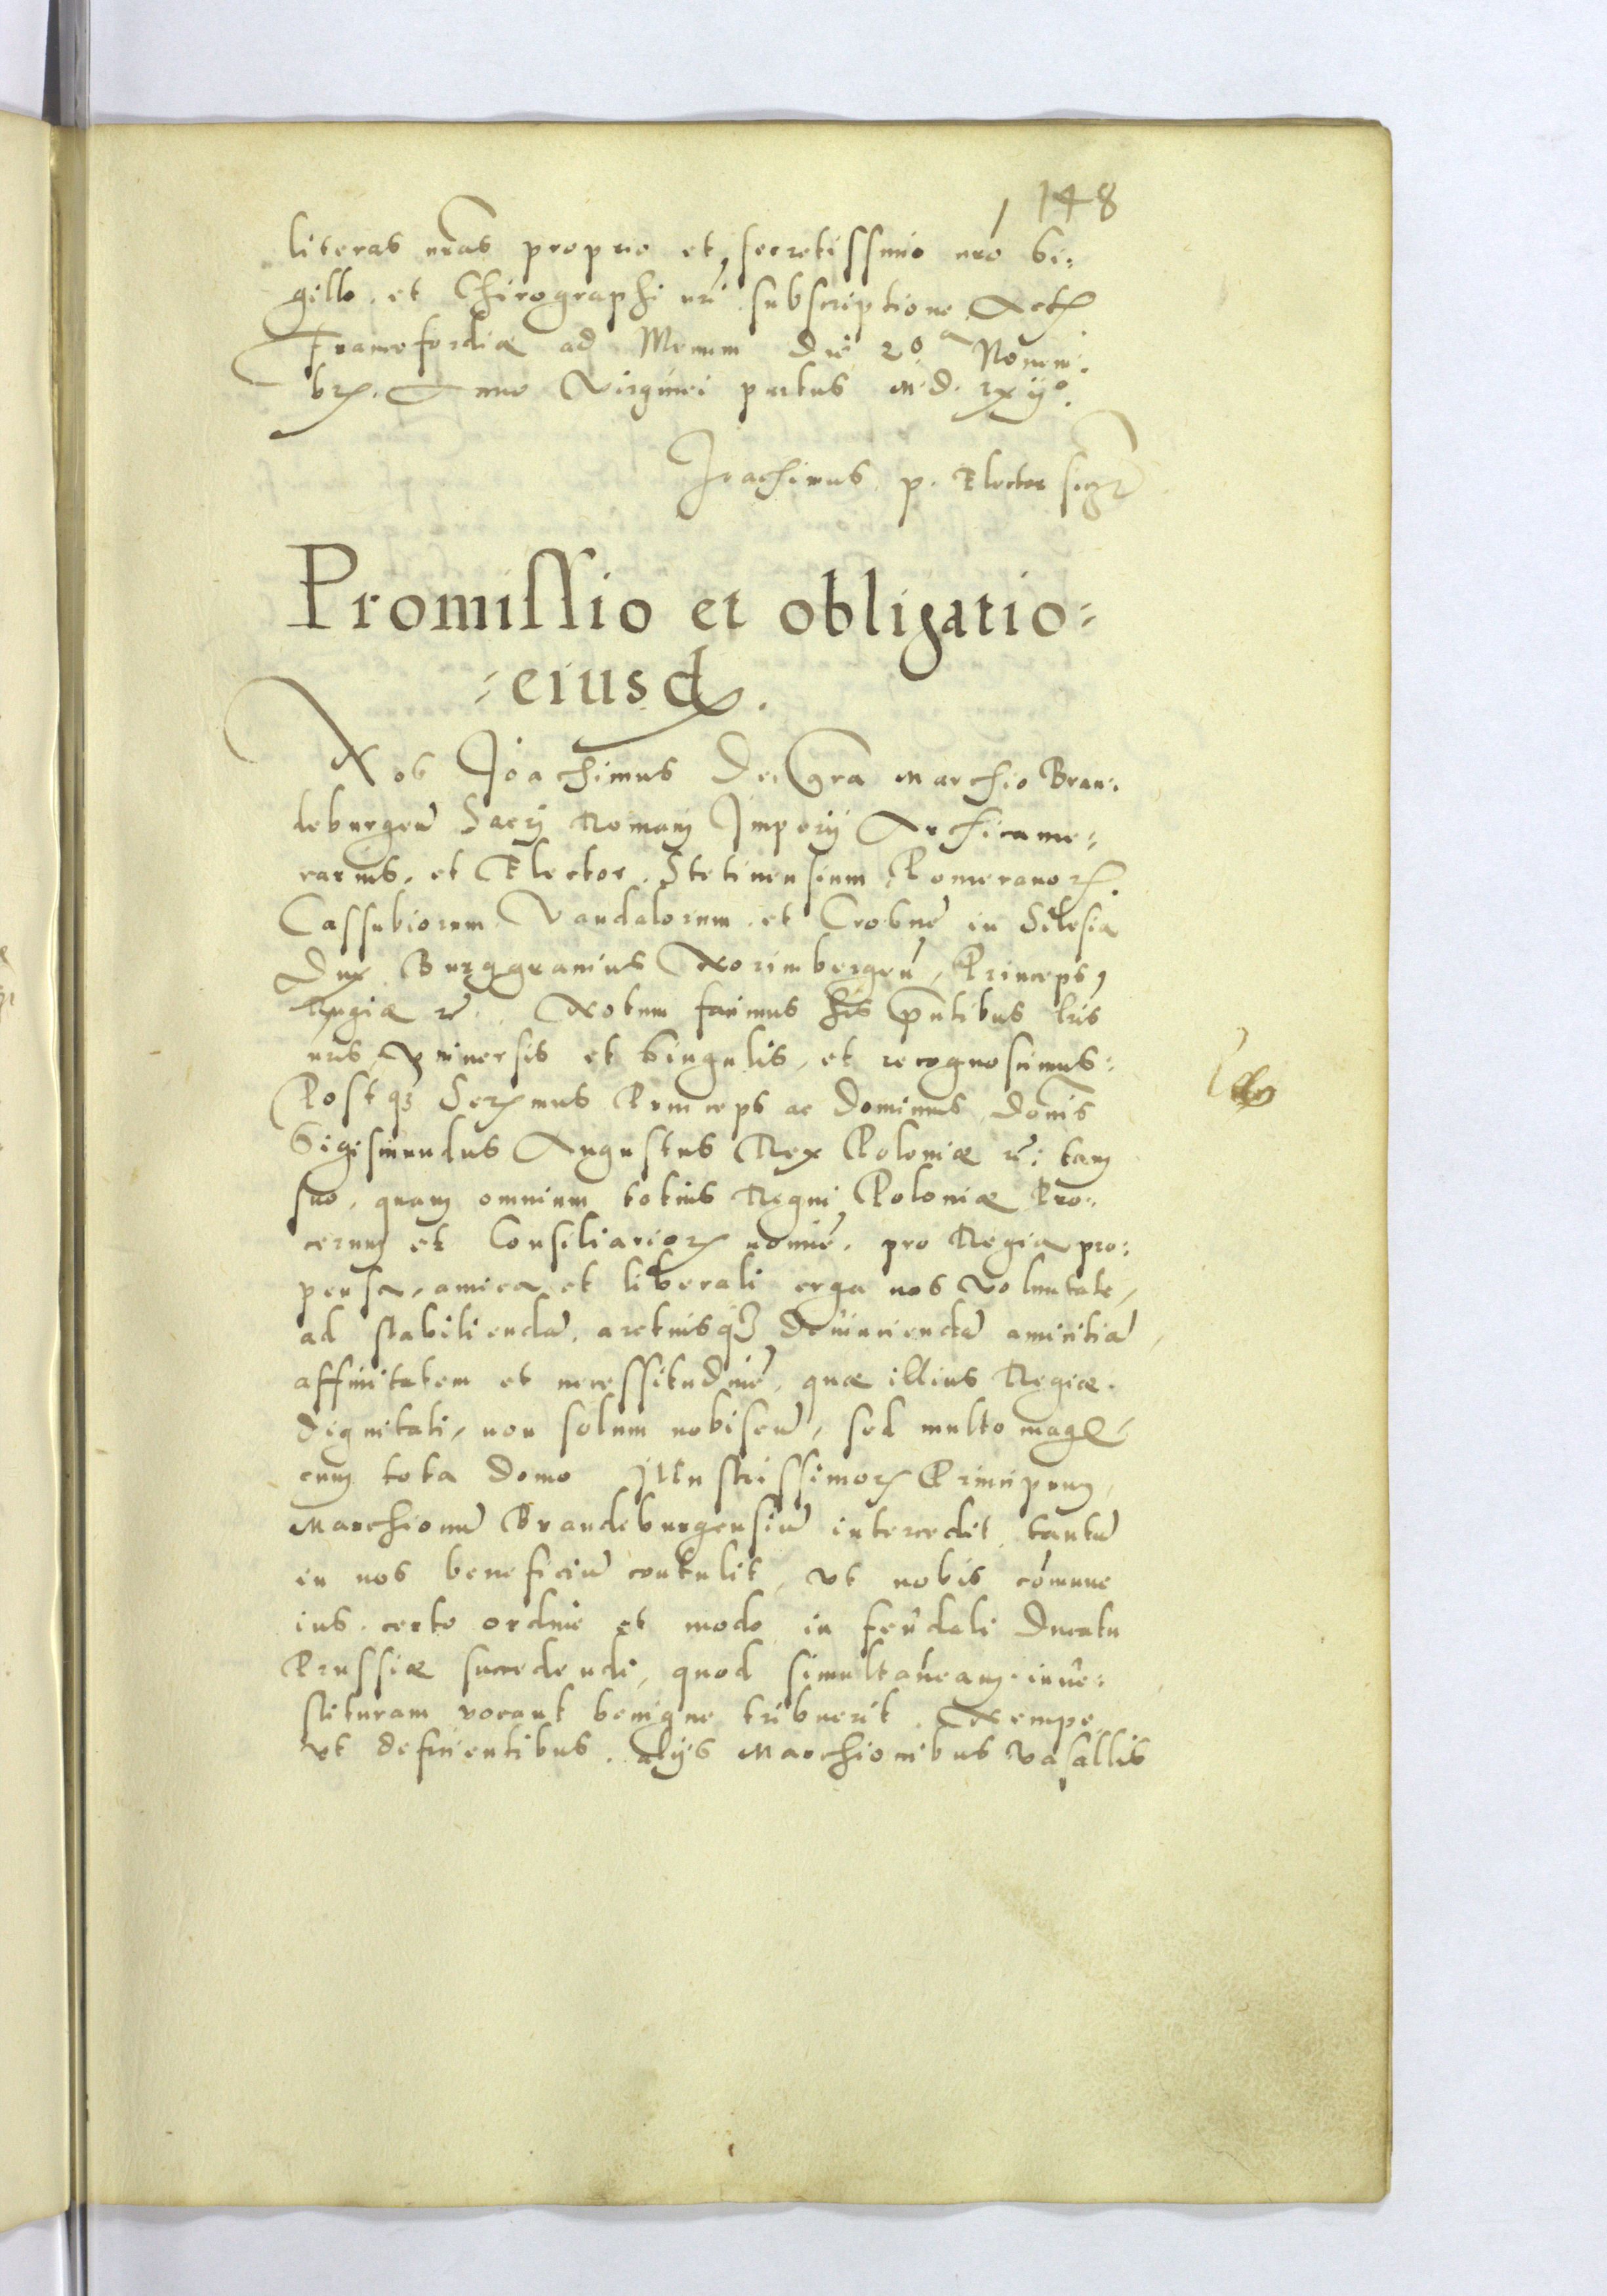 148
literas nr̃as proprio et secretissimo nr̃o si:
gillo et Chirographi nr̃i subscriptione Act
Francofordiæ ad Menum Die 20 Nouem:
br. Anno Virginei partus M.D. lxij°.
Joachimus p. Elector
Promissio et obligatio=
=eiusd.
Nos Joachimus Dei Gr̃a Marchio Bran:
deburgeñ Sacrj Romanj Imperij Archicame:
rarius, et Elector. Stetinensium Pomeranoꝝ
Cassubiorum Vandalorum et Crosneñ in Silesia
Dux Burggrauius Norimbergeñ, Princeps
Rugiæ ꝛc̃. Notum facimus his p̃ntibus lr̃is
nr̃is Vniuersis et Singulis, et recognoscimus:
Postqꝫ Serᵐmus Princeps ac Dominus, Domı̃s
Sigismundus Augustus Rex Poloniæ ꝛc̃: tam
suo, quam omnium totius Regni Poloniæ Pro:
cerum et Consiliarioꝝ nomiẽ, pro Regia pro:
pensa, amica et liberali erga nos Voluntate,
ad stabiliendã, arctiusqꝫ deuinciendã amicitiã
affinitatem et necessitudinẽ, quæ illius Regiæ
dignitati, non solum nobiscũ, sed multo mag
cum tota domo Illustrissimoꝝ Principum
Marchionũ Brandeburgensiũ intercedit, tantũ
in nos beneficiũ contulit, vt nobis com̃une
ius certo ordine et modo in feudali Ducatu
Prussiæ succedendi, quod simultaneam inue:
stituram vocant benigne tribuerit. Nempe
vt deficientibus alijs Marchionibus Vasallis